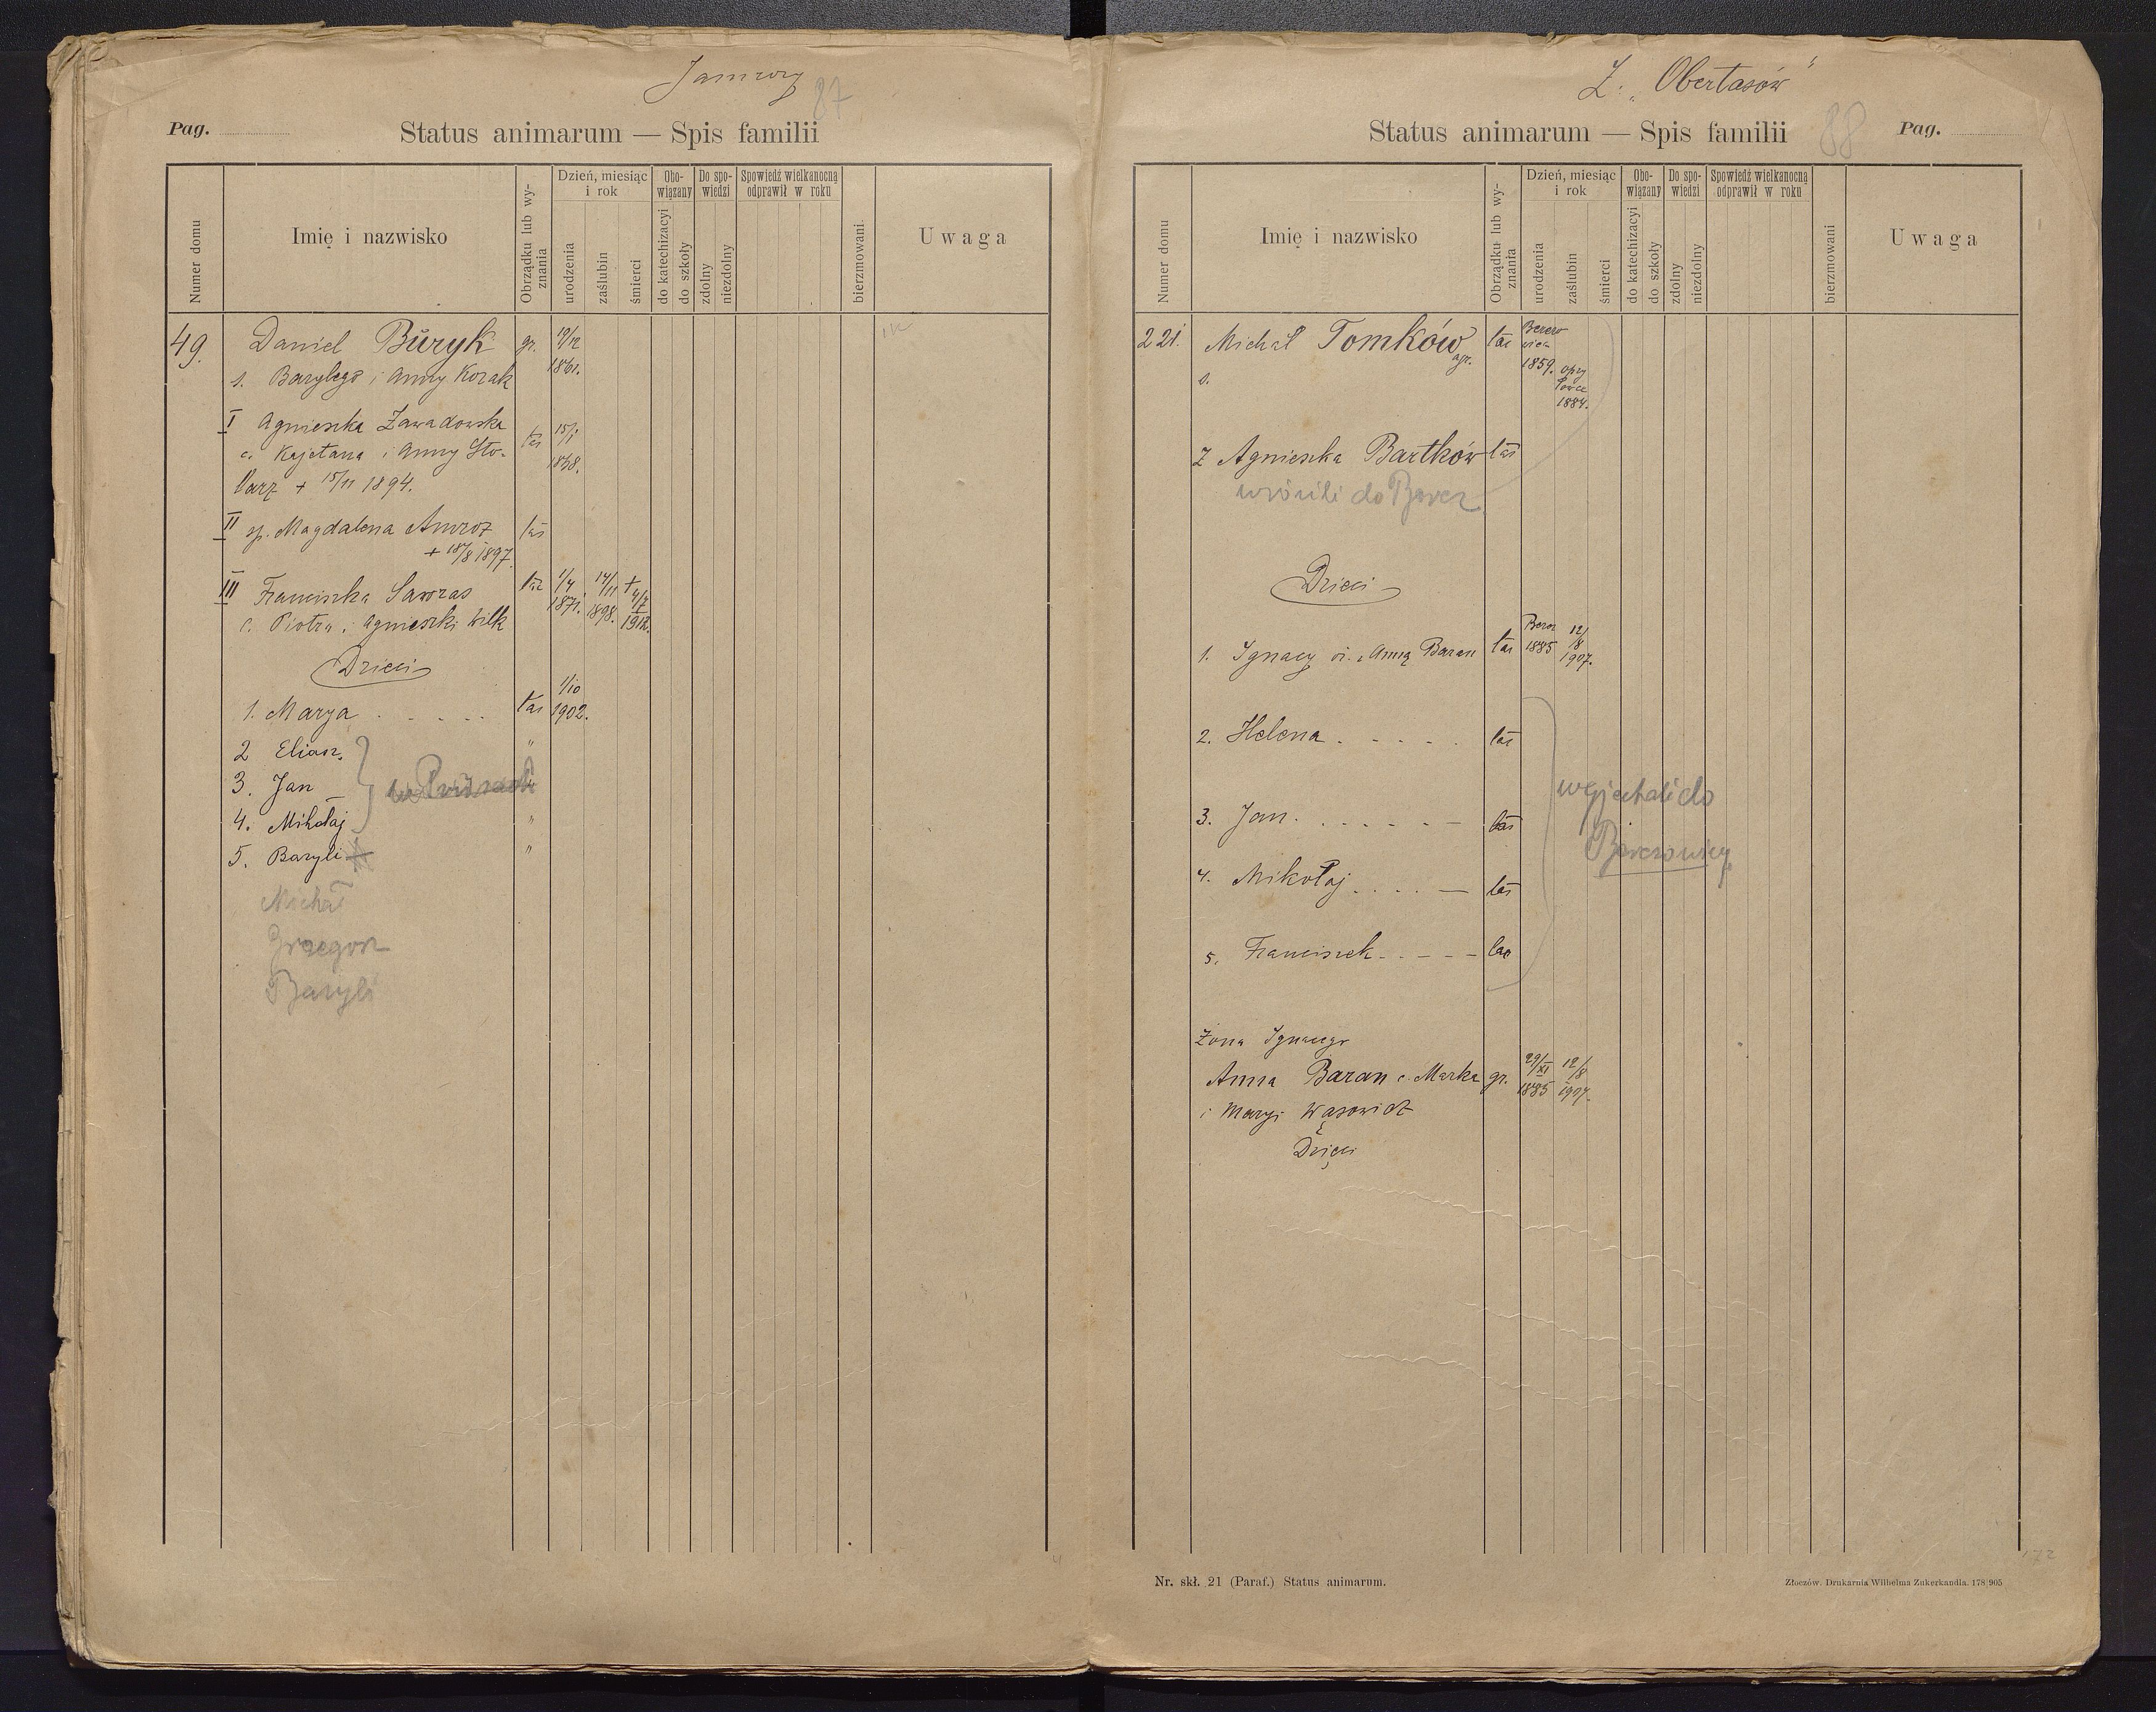 Jamrozy
87
Pag.
Status animarum — Spis familii
Numer domu
Imię i nazwisko
Obrządku lub wyznania
Dzień, miesiąc i rok
urodzenia
zaślubin
śmierci
Obowiązany
do katechizacyi
do szkoły
Do spowiedzi
zdolny
niezdolny
Spowiedź wielkanocną odprawił w roku
bierzmowani.
Uwaga
49. Daniel Buryk gr. 19/12 1861.
s. Bazylego i Anny Kozak
I Agnieszka Zawadowska łać 15/1
c. Kajetana i Anny
+ 15/11 1894.
II Magdalena Amroz łać
+ 18/8 1897.
III Franciszka Sawras łać 1/4 1871. 14/11 1898. + 4/7 1912.
c. Piotra i Agnieszki Wilk
Dzieci
1. Marya . . . . . łać 1/10 1902.
2 Eliasz. "
3. Jan "
4. Mikołaj "
5. Bazyli "
Michał
Grzegorz
Bazyli
Z. „Obertasów"
88
Status animarum — Spis familii
Pag.
Numer domu
Imię i nazwisko
Obrządku lub wyznania
Dzień, miesiąc i rok
urodzenia
zaślubin
śmierci
Obowiązany
do katechizacyi
do szkoły
Do spowiedzi
zdolny
niezdolny
Spowiedź wielkanocną odprawił w roku
bierzmowani
Uwaga
221. Michał Tomków łać 1859. 1884.
s.
Ż Agnieszka Bartków łać
wrócili do
Dzieci
1. Ignacy ż. Anną Baran łać 1885 12/8 1907.
2. Helena . . . . . łać
wyjechali do
3. Jan . . . . . . — łać
4. Mikołaj . . . . — łać
5. Franciszek . . — — — łać
Żona Ignacego
Anna Baran c. Marka gr. 29/XI 1885 12/8 1907.
i Maryi Wąsowicz
Dzieci
Nr. skł. 21 (Paraf.) Status animarum.
Złoczów. Drukarnia Wilhelma Zukerkandla. 178|905
172